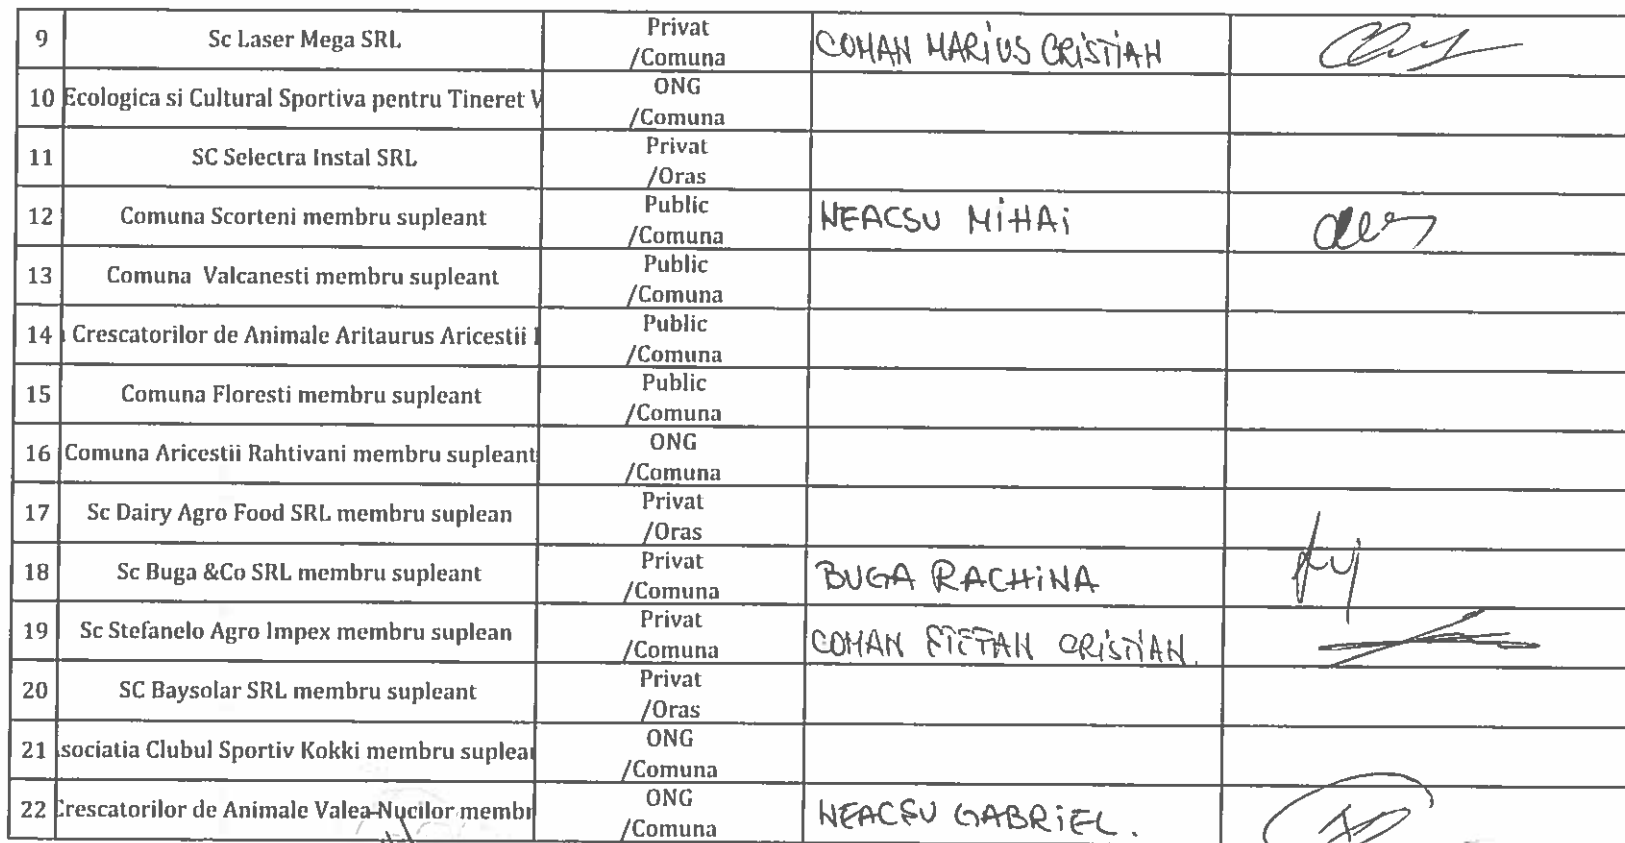 9 Sc Laser Mega SRL Privat /Comuna COMAN MARIUS CRISTIAN
10 Ecologica si Cultural Sportiva pentru Tineret V ONG /Comuna
11 SC Selectra Instal SRL Privat /Oras
12 Comuna Scorteni membru supleant Public /Comuna NEACSU MIHAI
13 Comuna Valcanesti membru supleant Public /Comuna
14 Crescatorilor de Animale Aritaurus Aricestii Public /Comuna
15 Comuna Floresti membru supleant Public /Comuna
16 Comuna Aricestii Rahtivani membru supleant ONG /Comuna
17 Sc Dairy Agro Food SRL membru suplean Privat /Oras
18 Sc Buga &Co SRL membru supleant Privat /Comuna BUGA RACHINA
19 Sc Stefanelo Agro Impex membru suplean Privat /Comuna COMAN STEFAN CRISTIAN.
20 SC Baysolar SRL membru supleant Privat /Oras
21 sociatia Clubul Sportiv Kokki membru suplea ONG /Comuna
22 Crescatorilor de Animale Valea Nucilor membr ONG /Comuna NEACSU GABRIEL.